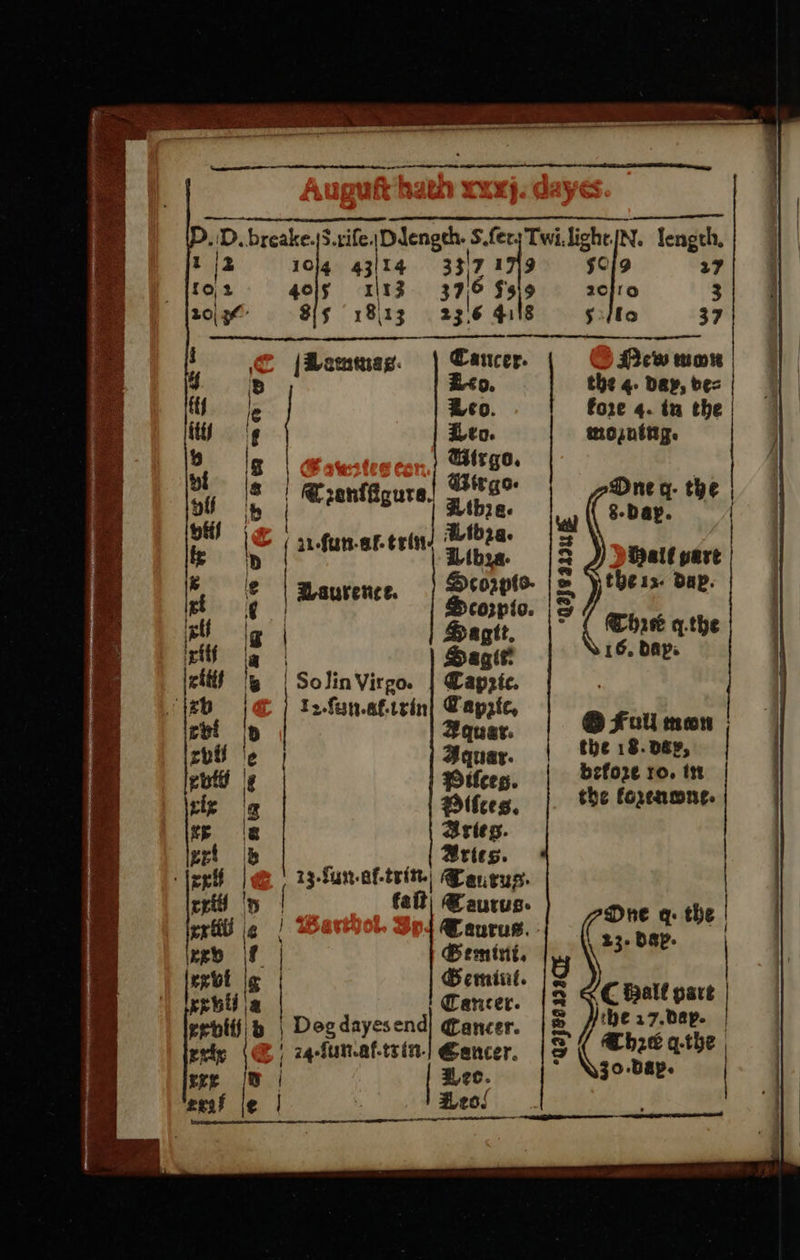 Auguſt hath xxxj. dayes.
D. D. breake. S. riſe. D length. S. ſet. Twi. light. N. length.
1 2 10 4 43 14 33 7 17 9 50 9 27
10 2 40 5 1 13 37 6 9 20 10 3
20 8 5 18 13 23 6 41 8 5 10 37
i C Lammas. Cancer. New mon
ij D Leo. the 4. day, be=
iij e Leo. fore 4. in the
iiij f Leo. morning.
v g Virgo.
vi a Tranſfigura. Virgo. One q. the
vij b Libra. 8. day.
viij C 11. ſun. af. trin. Libra.
ix D Libra. Increaſed. Half part
x e Laurence. Scorpio. the 12. day.
xi f Scorpio.
xij g Sagit. Thrée q. the
xiij a Sagit. 16. day.
xiiij b Sol in Virgo. Capric.
xv C 12. ſun. af. trin Capric,
xvi D Aquar. Full moon
xvij e Aquar. the 18. day,
xviij f Piſces. before 10. in
xix g Piſces. the forenoone.
xx a Aries.
xxi b Aries.
xxij C 13. ſun. af. trin. Taurus.
xxiij D faſt Taurus.
xxiiij e Barthol. Ap. Taurus. One q. the
xxv f Gemini. 23. day.
xxvi g Gemini.
xxvij a Cancer. Decreaſed. Half part
xxviij b Dog dayes end Cancer. the 27. day.
xxix C 14. ſun. af. trin. Cancer. Thrée q. the
xxx D Leo. 30. day.
xxxj e Leo.